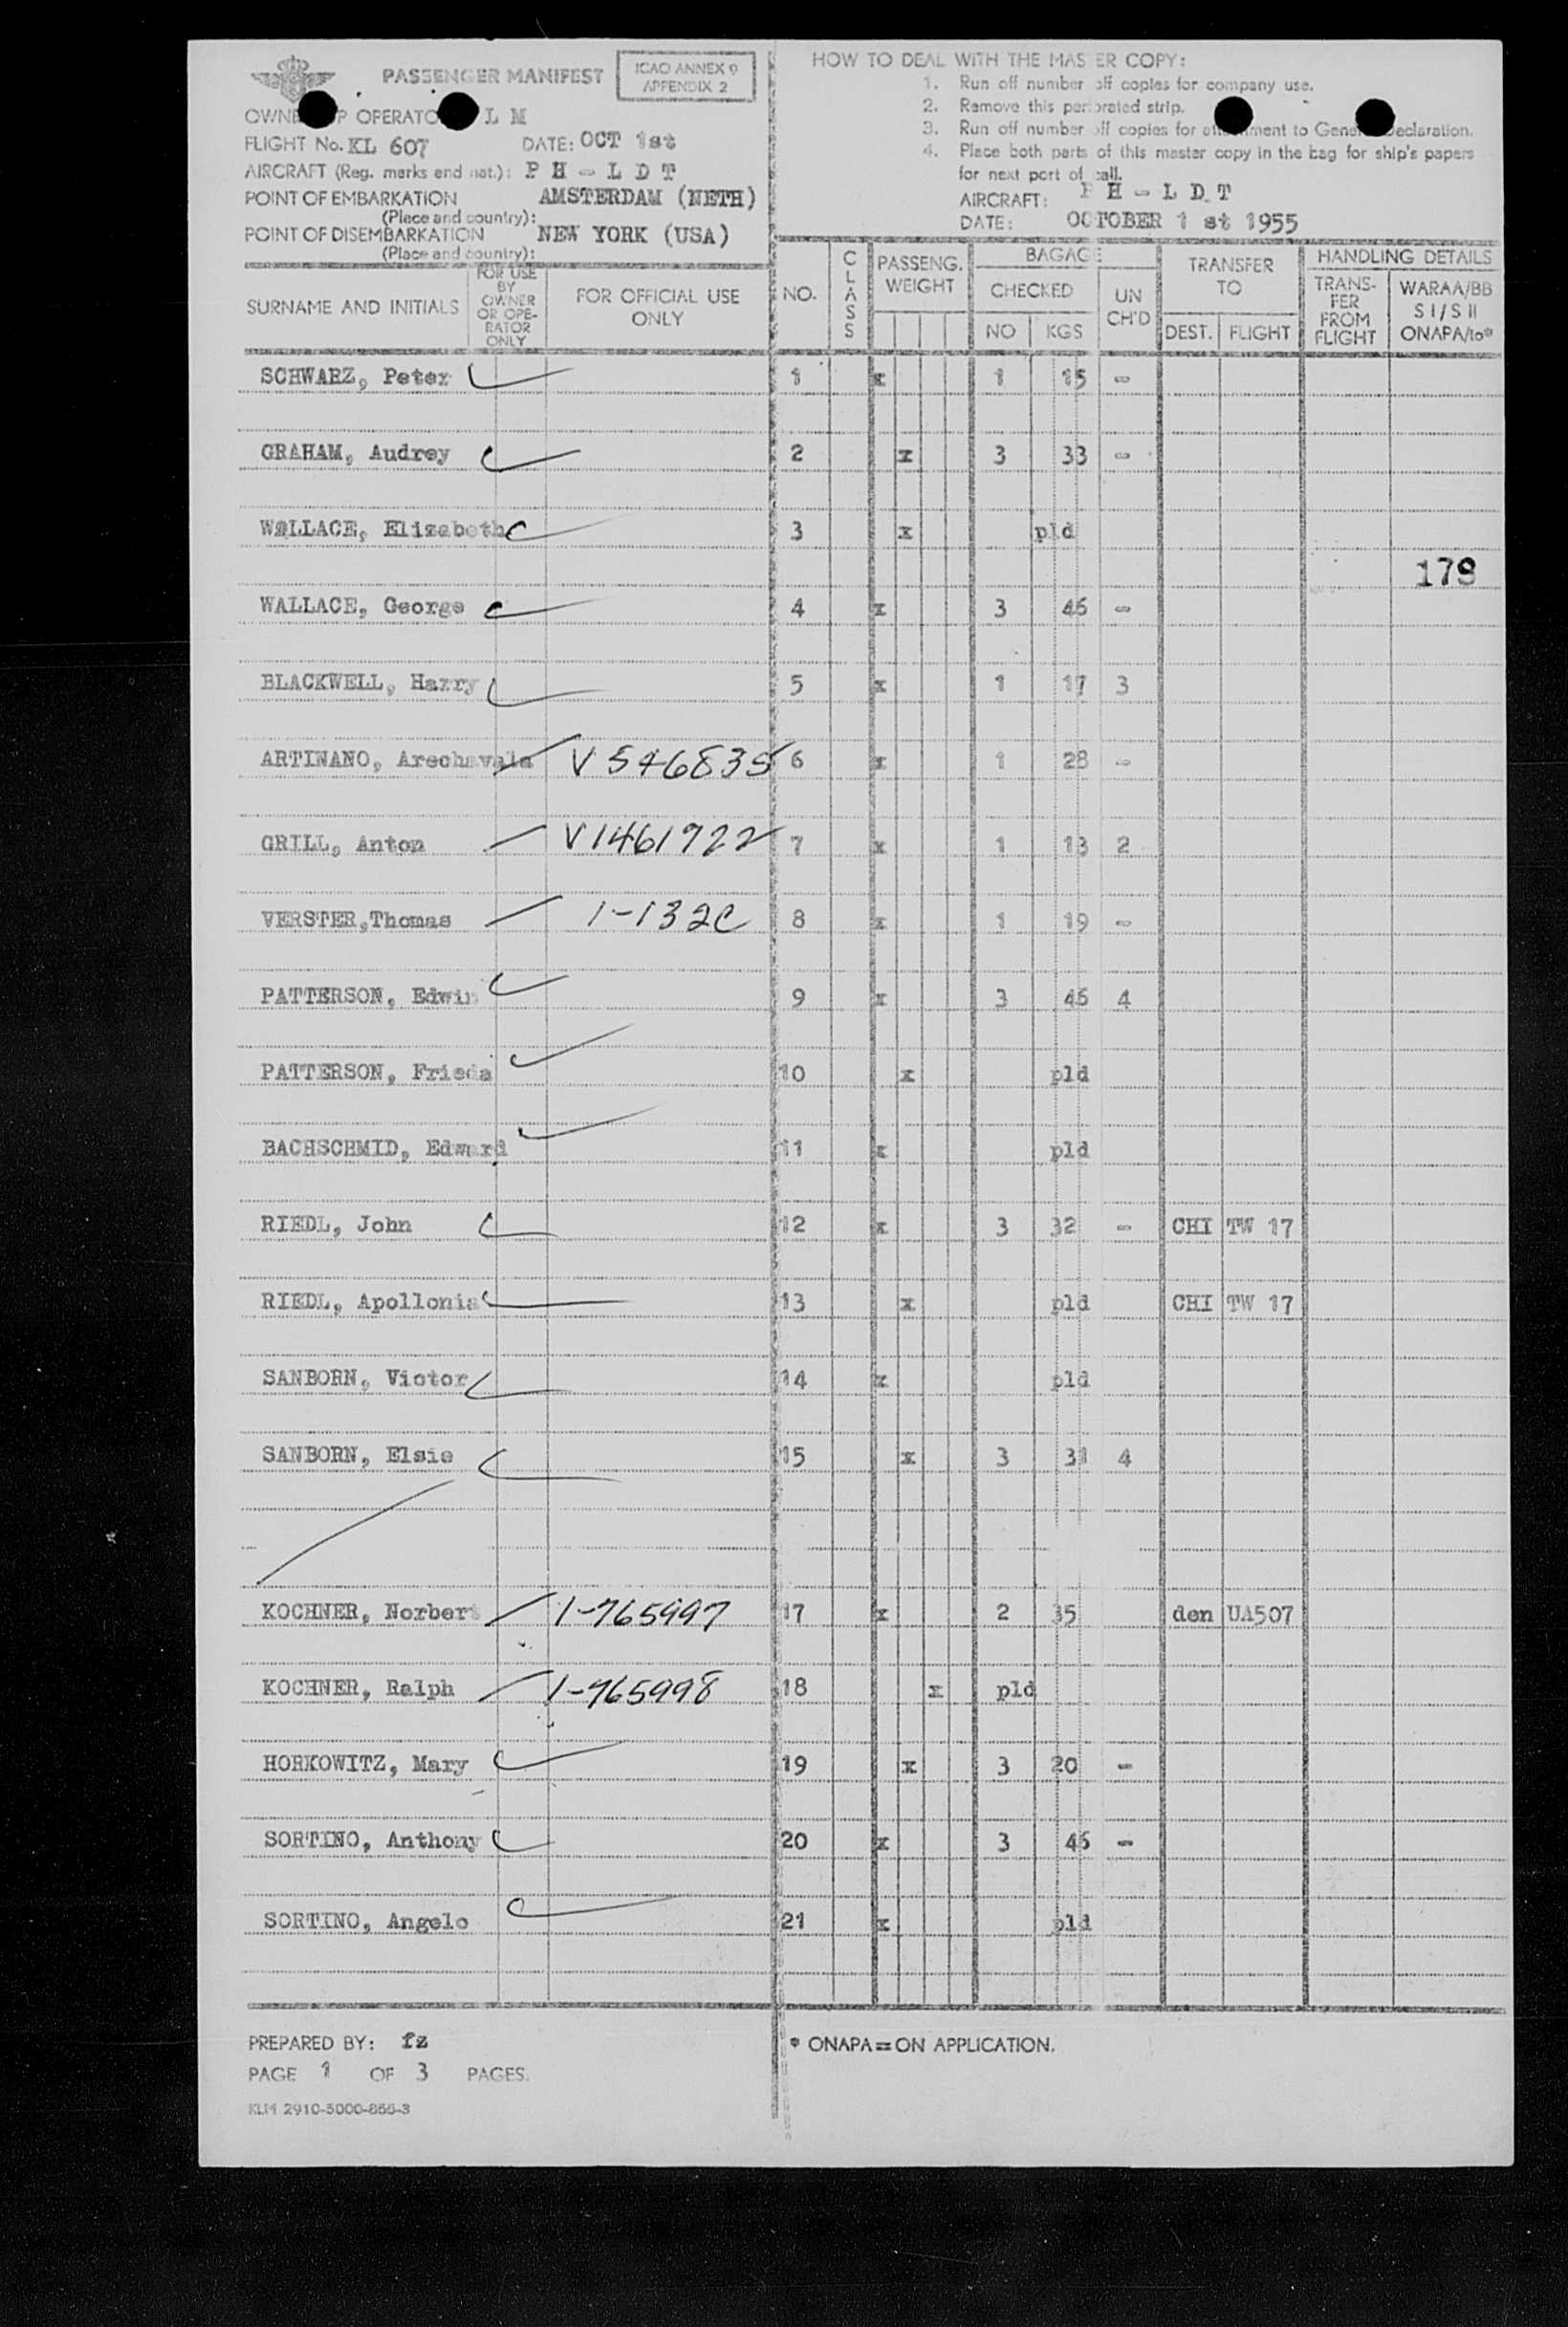 PASSENGER MANIFEST
ICAO ANNEX 9
APPENDIX 2
L M
FLIGHT No. KL 607 DATE: OCT 1st
AIRCRAFT (Reg. marks and nat.): P H - L D T
POINT OF EMBARKATION AMSTERDAM (NETH)
(Place and country):
POINT OF DISEMBARKATION NEW YORK (USA)
(Place and country):
HOW TO DEAL WITH THE MASTER COPY:
1. Run off number off copies for company use.
2. Remove this perforated strip.
3. Run off number off copies for attachment to General Declaration.
4. Place both parts of this master copy in the bag for ship's papers
for next port of call.
AIRCRAFT: P H - L D T
DATE: OCTOBER 1 st 1955
SURNAME AND INITIALS
FOR USE BY OWNER OR OPERATOR ONLY
FOR OFFICIAL USE ONLY
NO.
CLASS
PASSENG. WEIGHT
BAGAGE
CHECKED
NO KGS
UN CH'D
TRANSFER TO
DEST. FLIGHT
HANDLING DETAILS
TRANSFER FROM FLIGHT
WARAA/BB
S I / S II
ONAPA/to*
SCHWARZ, Peter 1 x 1 15 -
GRAHAM, Audrey 2 x 3 33 -
WALLACE, Elizabeth 3 x pld
178
WALLACE, George 4 x 3 46 -
BLACKWELL, Harry 5 x 1 17 3
ARTINANO, Arechavala V 546835 6 x 1 28 -
GRILL, Anton V1461722 7 x 1 13 2
VERSTER, Thomas 1-132C 8 x 1 19 -
PATTERSON, Edwin 9 x 3 46 4
PATTERSON, Frieda 10 x pld
BACHSCHMID, Edward 11 x pld
RIEDL, John 12 x 3 32 - CHI TW 17
RIEDL, Apollonia 13 x pld CHI TW 17
SANBORN, Victor 14 x pld
SANBORN, Elsie 15 x 3 31 4
KOCHNER, Norbert 1-765997 17 x 2 35 den UA507
KOCHNER, Ralph 1-765998 18 x pld
HORKOWITZ, Mary 19 x 3 20 -
SORTINO, Anthony 20 x 3 46 -
SORTINO, Angelo 21 x pld
PREPARED BY: fz
PAGE 1 OF 3 PAGES.
KLM 2910-5000-855-3
* ONAPA = ON APPLICATION.